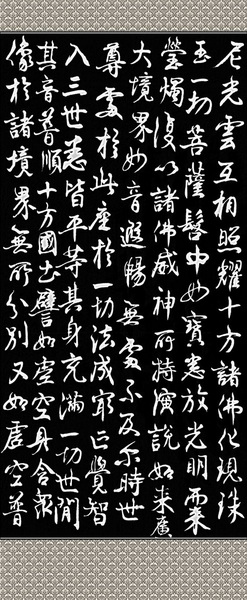 尼光雲互相照耀十方諸佛化現珠
玉一切菩薩髻中妙寶悉放光明而來
瑩燭復以諸佛威神所持演說如来廣
大境界妙音遐暢無處不及尔時世
尊處於此座於一切法成最正覺智
入三世悉皆平等其身充滿一切世間
其音普順十方國土譬如虛空具含眾
像於諸境界無所分別又如虛空普